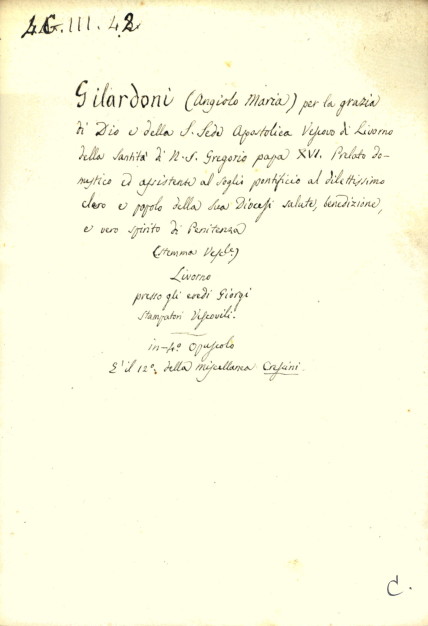 4G.III.42
Gilardoni (Angiolo Maria) per la grazia
di Dio e della S. Sede Apostolica Vescovo di Livorno
della Santità di N. S. Gregorio papa XVI. Prelato do-
mestico ed assistente al Soglio pontificio al dilettissimo
clero e popolo della sua Diocesi salute, benedizione,
e vero spirito di Penitenza
(stemma Vesc.le)
Livorno
presso gli eredi Giorgi
Stampatori Vescovili.
in-4º Opuscolo
E' il 12º. della miscellanea Crestini.
C.